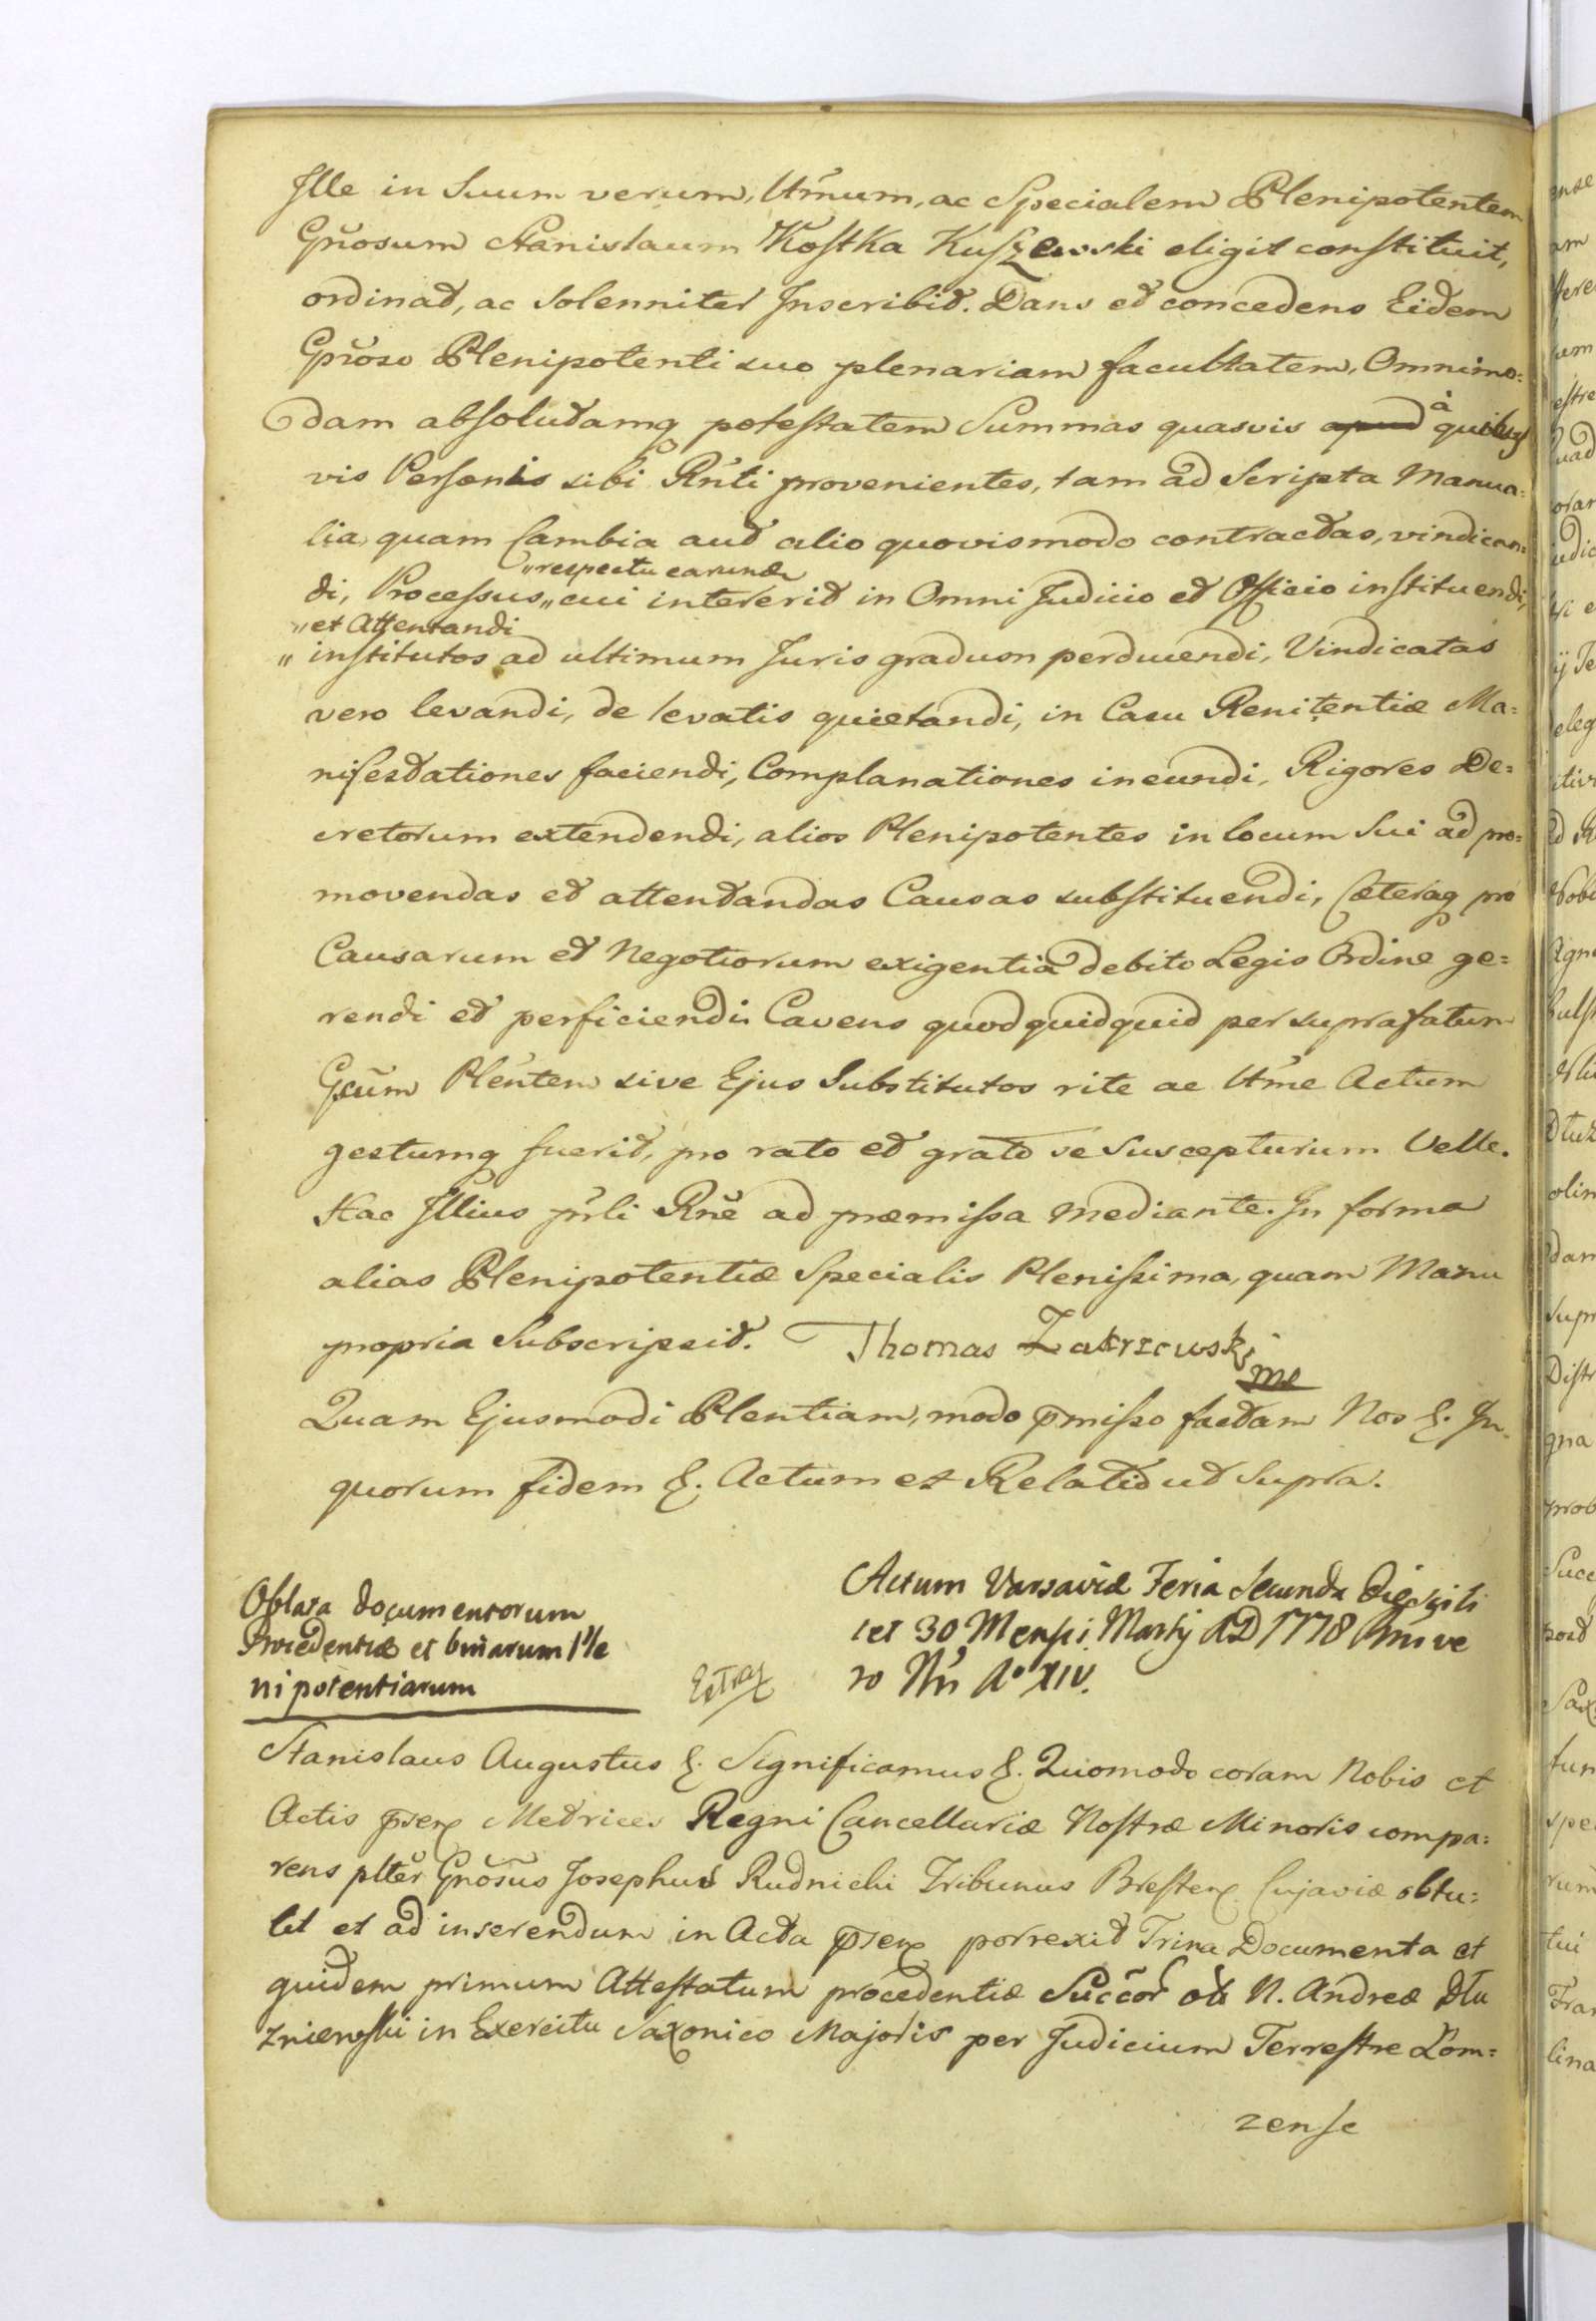 Ille in Suum verum, Utm̃um, ac Specialem Plenipotentem
Gñosum Stanislaum Kostka Kuszewski eligit constituit,
ordinat, ac Solenniter Inscribit. Dans et concedens Eidem
Gñoso Plenipotenti suo plenariam facultatem, Omnimo=
dam absolutamq potestatem Summas quasvis apud à quibus
vis Personis sibi Rñti provenientes, tam ad Scripta Manua=
lia, quam Cambia aut alio quovismodo contractas, vindican=
"respectu earundem
di, Processus,, cui intererit in Omni Judicio et Officio instituendi,
"et Attentandi
" institutos ad ultimum Juris gradum perducendi, Vindicatas
vero levandi, de levatis quietandi, in Casu Renitentiæ Ma=
nifestationes faciendi, Complanationes ineundi, Rigores De=
cretorum extendendi, alios Plenipotentes in locum Sui ad pro=
movendas et attentandas Causas substituendi, Cæteraq pro
Causarum et Negotiorum exigentiâ debito Legis Ordine ge=
rendi et perficiendi. Cavens quod quidquid per suprafatum
Gsũm Plẽntem sive Ejus Substitutos rite ac Utm̃e Actum
gestumq fuerit, pro rato et grato se Suscepturum Velle.
Hac Illius pñli Rñe ad præmissa mediante. In forma
alias Plenipotentiæ Specialis Plenissima, quam Manu
propria Subscripsit. Thomas Zakrzewski
mp
Quam Ejusmodi Plentiam, modo p̃misso factam Nos &. In
quorum fidem &. Actum et Relatio ut Supra.
Oblata documentorum
Procedentiæ et binarum Ple
nipotentiarum
Extrax
Actum Varsaviæ Feria Secunda Die Scili
cet 30 Mensis Martij AD 1778 Rñi ve
ro Nri Aº XIV.
Stanislaus Augustus &. Significamus &. Quomodo coram Nobis et
Actis p̃sen Metrices Regni Cancellariæ Nostræ Minoris compa=
rens plter Gñosus Josephus Rudnicki Tribunus Bresten Cujaviæ obtu=
lit et ad inserendum in Acta p̃sen porrexit Trina Documenta et
quidem primum Attestatum procedentiæ Succor̃ ol̃ N. Andreæ Dłu
zniewski in Exercitu Saxonico Majoris per Judicium Terrestre Łom=
zense